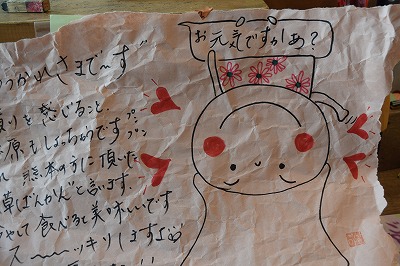 お元気ですかぁ?
つかれさまで〜す
りを感じること、
原もしょっちゅうです プンプン
れ、熊本の方に頂いた
草ばんかん"と言います。
やって食べると美味しいです
ス〜〜ッキリしますよ